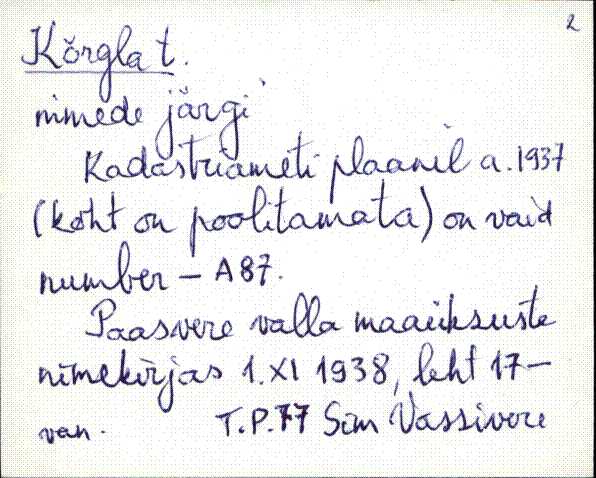 2
Kõrgla t.
nimede järgi
Kadastriameti plaanil a. 1937
(koht on poolitamata) on vaid
number – A87.
Paasvere valla maaüksuste
nimekirjas 1.XI 1938, leht 17 –
van. T.P.77 Sim Vassivere